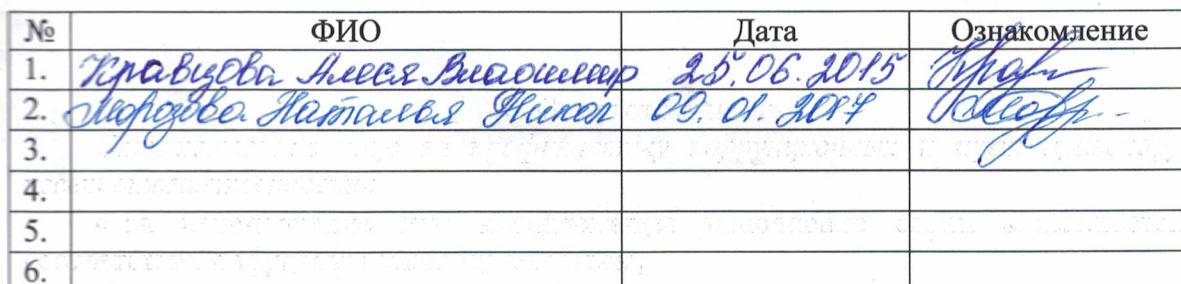 № ФИО Дата Ознакомление
1. Кравцова Алеся Владимир 25.06.2015
2. Морозова Наталья Никол 09.01.2017
3.
4.
5.
6.